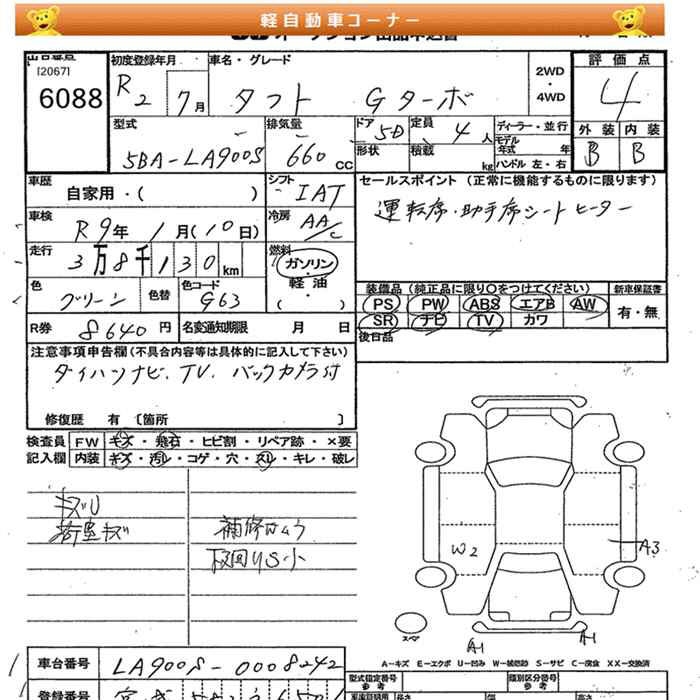 軽自動車コーナー
[2067]
6088
初度登録年月
R2 7月
車名・グレード
タフト Gターボ
2WD
・
4WD
評価点
4
外装 内装
B B
型式
5BA-LA900S
排気量
660 CC
ドア
5D
形状
定員
4人
積載
kg
ディーラー・並行
モデル年式 年
ハンドル 左・右
車歴
自家用・( )
シフト
IAT
車検
R9年 1月(10日)
冷房
AA/C
走行
3万8千130km
燃料
ガソリン
・
軽油
・
( )
色
グリーン
色替
色コード
G63
R券 8640円
名変通知期限 月 日
セールスポイント (正常に機能するものに限ります)
運転席・助手席シートヒーター
装備品 (純正品に限り○をつけてください)
PS PW ABS エアB AW
SR ナビ TV カワ
新車保証書
有・無
後日品
注意事項申告欄(不具合内容等は具体的に記入して下さい)
ダイハツナビ、TV、バックカメラ付
修復歴 有 〔箇所 〕
検査員 FW キズ・飛石・ヒビ割・リペア跡・×要
記入欄 内装 キズ・汚レ・コゲ・穴・スレ・キレ・破レ
キズU
荷室キズ
補修はムラ
W2
A3
スペア
A-1 A-1
A－キズ E－エクボ U－凹み W－補修跡 S－サビ C－腐食 XX－交換済
車台番号 LA900S-0008242
登録番号
型式指定番号
参考
類別区分番号
参考